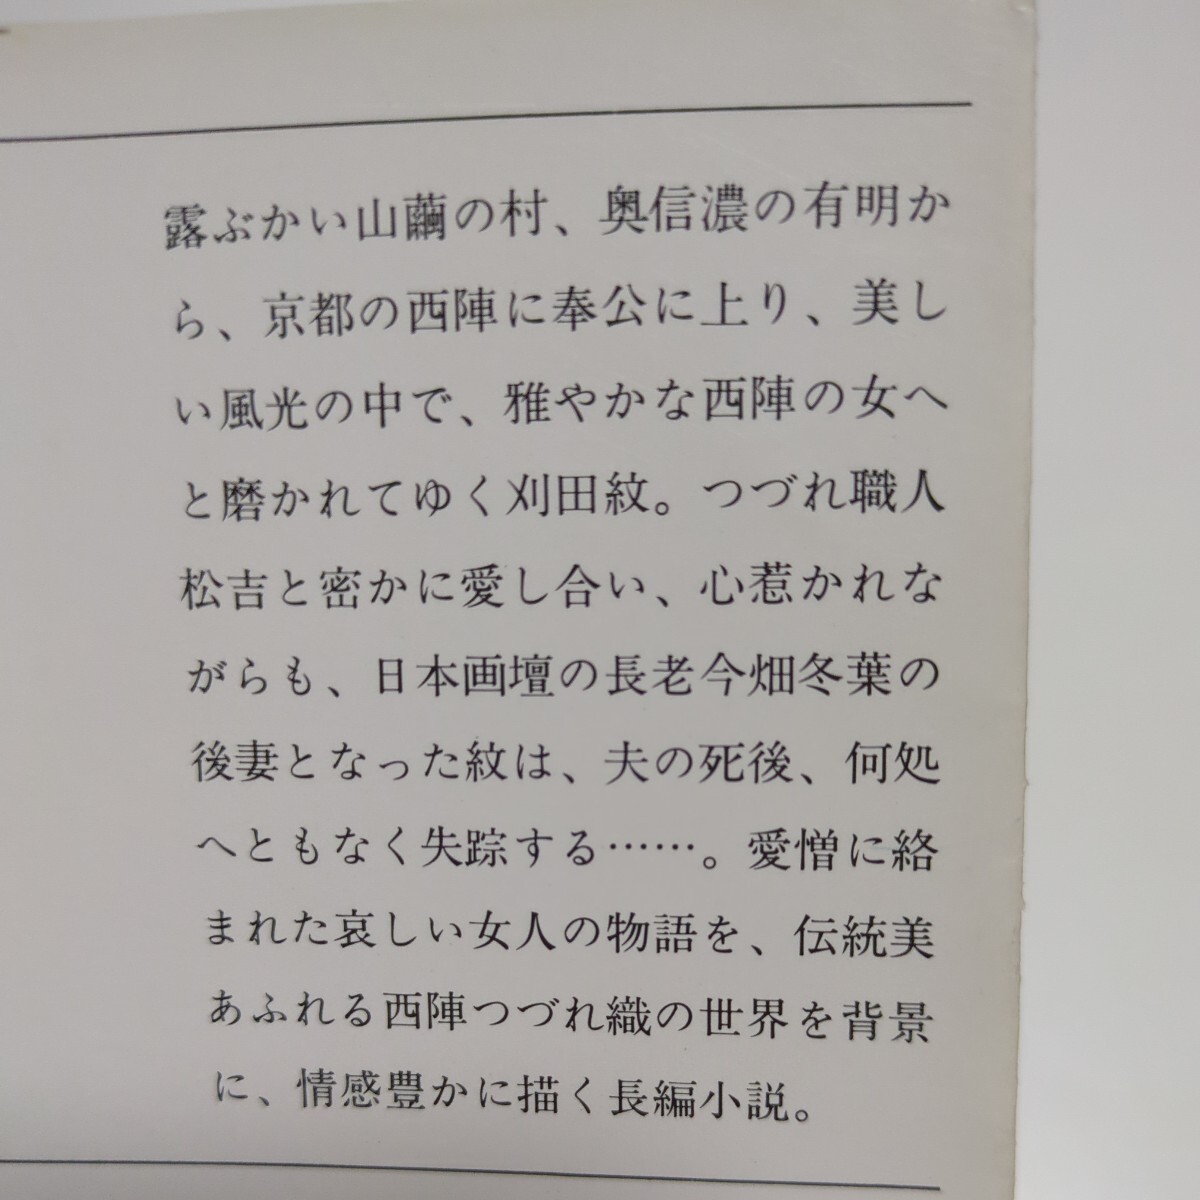 露ぶかい山繭の村、奥信濃の有明か
ら、京都の西陣に奉公に上り、美し
い風光の中で、雅やかな西陣の女へ
と磨かれてゆく刈田紋。つづれ職人
松吉と密かに愛し合い、心惹かれな
がらも、日本画壇の長老今畑冬葉の
後妻となった紋は、夫の死後、何処
へともなく失踪する……。愛憎に絡
まれた哀しい女人の物語を、伝統美
あふれる西陣つづれ織の世界を背景
に、情感豊かに描く長編小説。